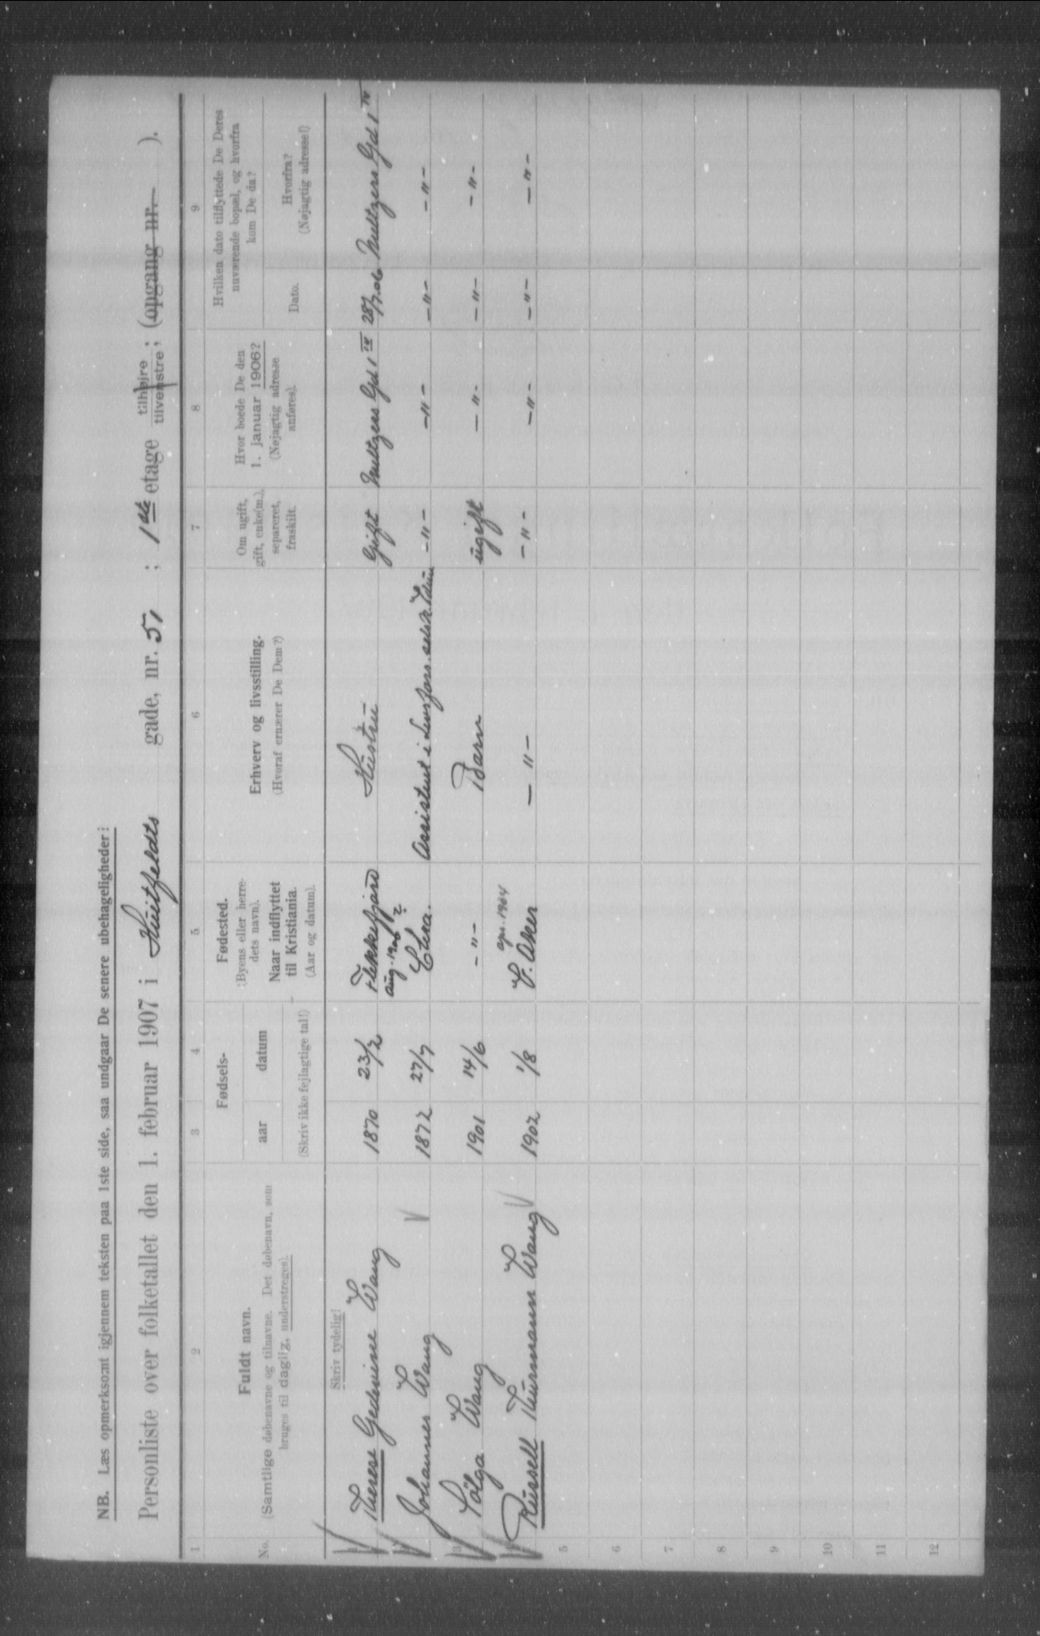 NB. Læs opmerksomt igjennem teksten paa 1ste side, saa undgaar De senere ubehageligheder!
Personliste over folketallet den 1. februar 1907 i Huitfeldts gade, nr. 51 ; 1ste etage tilhøire tilvenstre ; (opgang nr. ).
1 2 3 4 5 6 7 8 9
No.
Fuldt navn.
(Samtlige døbenavne og tilnavne. Det døbenavn, som
bruges til daglig, understreges).
Fødsels-
aar datum
(Skriv ikke fejlagtige tal!)
Fødested.
(Byens eller herre-
dets navn).
Naar indflyttet
til Kristiania.
(Aar og datum).
Erhverv og livsstilling.
(Hvoraf ernærer De Dem?)
Om ugift,
gift, enke(m.),
separeret,
fraskilt.
Hvor boede De den
1. januar 1906?
(Nøjagtig adresse
anføres).
Hvilken dato tilflyttede De Deres
nuværende bopæl, og hvorfra
kom De da?
Dato.
Hvorfra?
(Nøjagtig adresse!)
Skriv tydelig!
Therese Gediine Wang 1870 23/2 Flekkefjord Hustru Gift Meltzers Gd 1 IV 28/7.06 Meltzers Gd 1 IV
aug. 1906
Johannes Wang 1872 27/7 Chra. Assistent i -"- -"- -"- -"-
3 Sölga Wang 1901 14/6 -"- Barn ugift -"- -"- -"-
apr. 1904
Russell Thurmann Wang 1902 1/8 V. Aker -"- -"- -"- -"- -"-
5
6
7
8
9
10
11
12